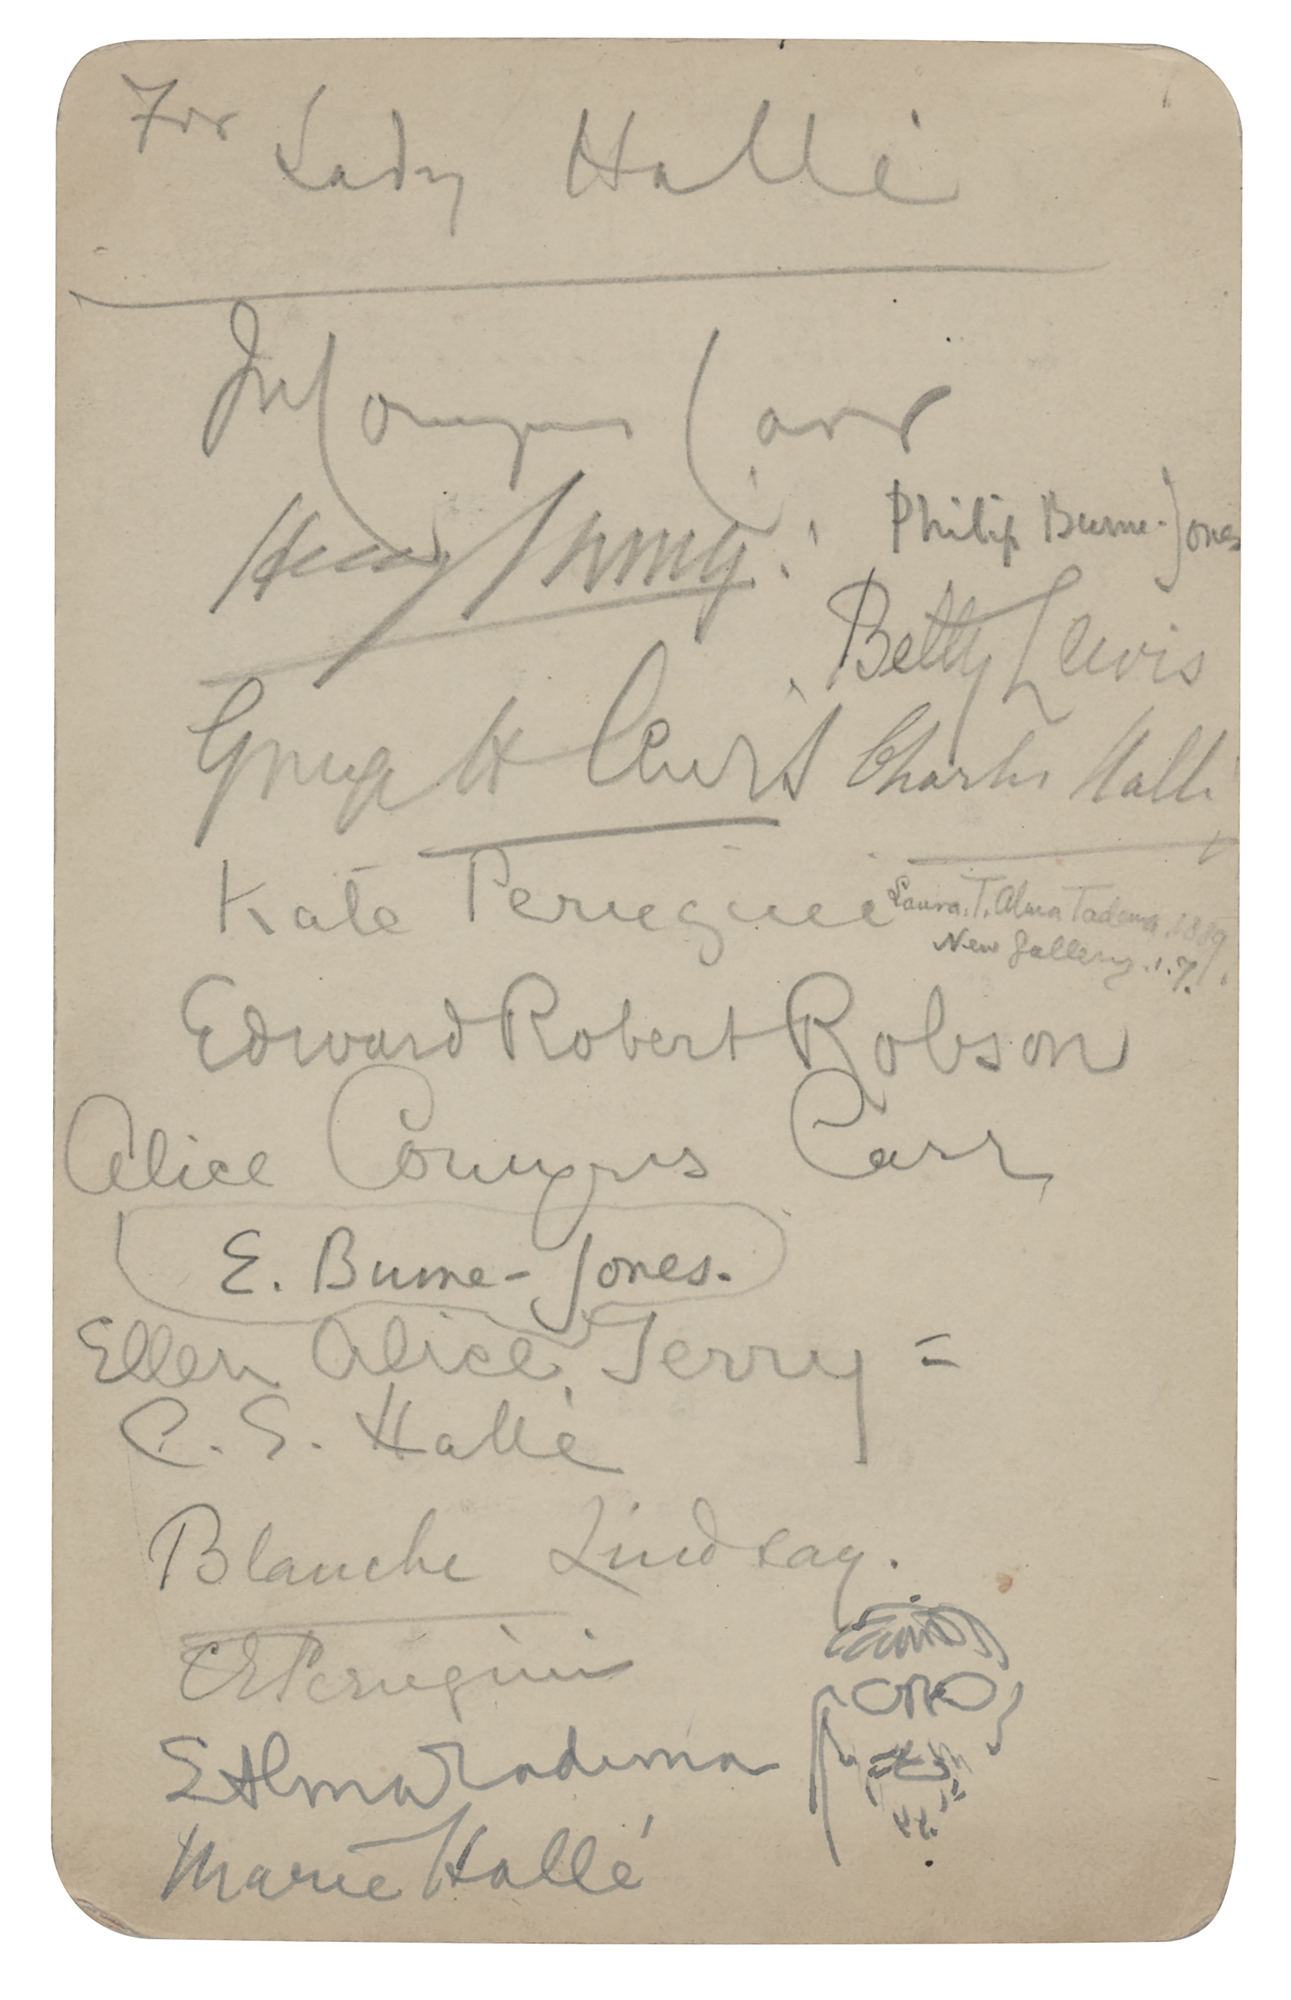 For Lady Hallé
J W Comyns Carr
Henry Irving.
Philip Burne-Jones
Betty Lewis
George H Lewis
Charles Hallé
Kate Perugini
Laura. T. Alma Tadema. 1889.
New Gallery. 1. 7.
Edward Robert Robson
Alice Comyns Carr
E. Burne-Jones.
Ellen Alice Terry =
C. E. Hallé
Blanche Lindsay.
CE Perugini
L Alma Tadema
Marie Hallé